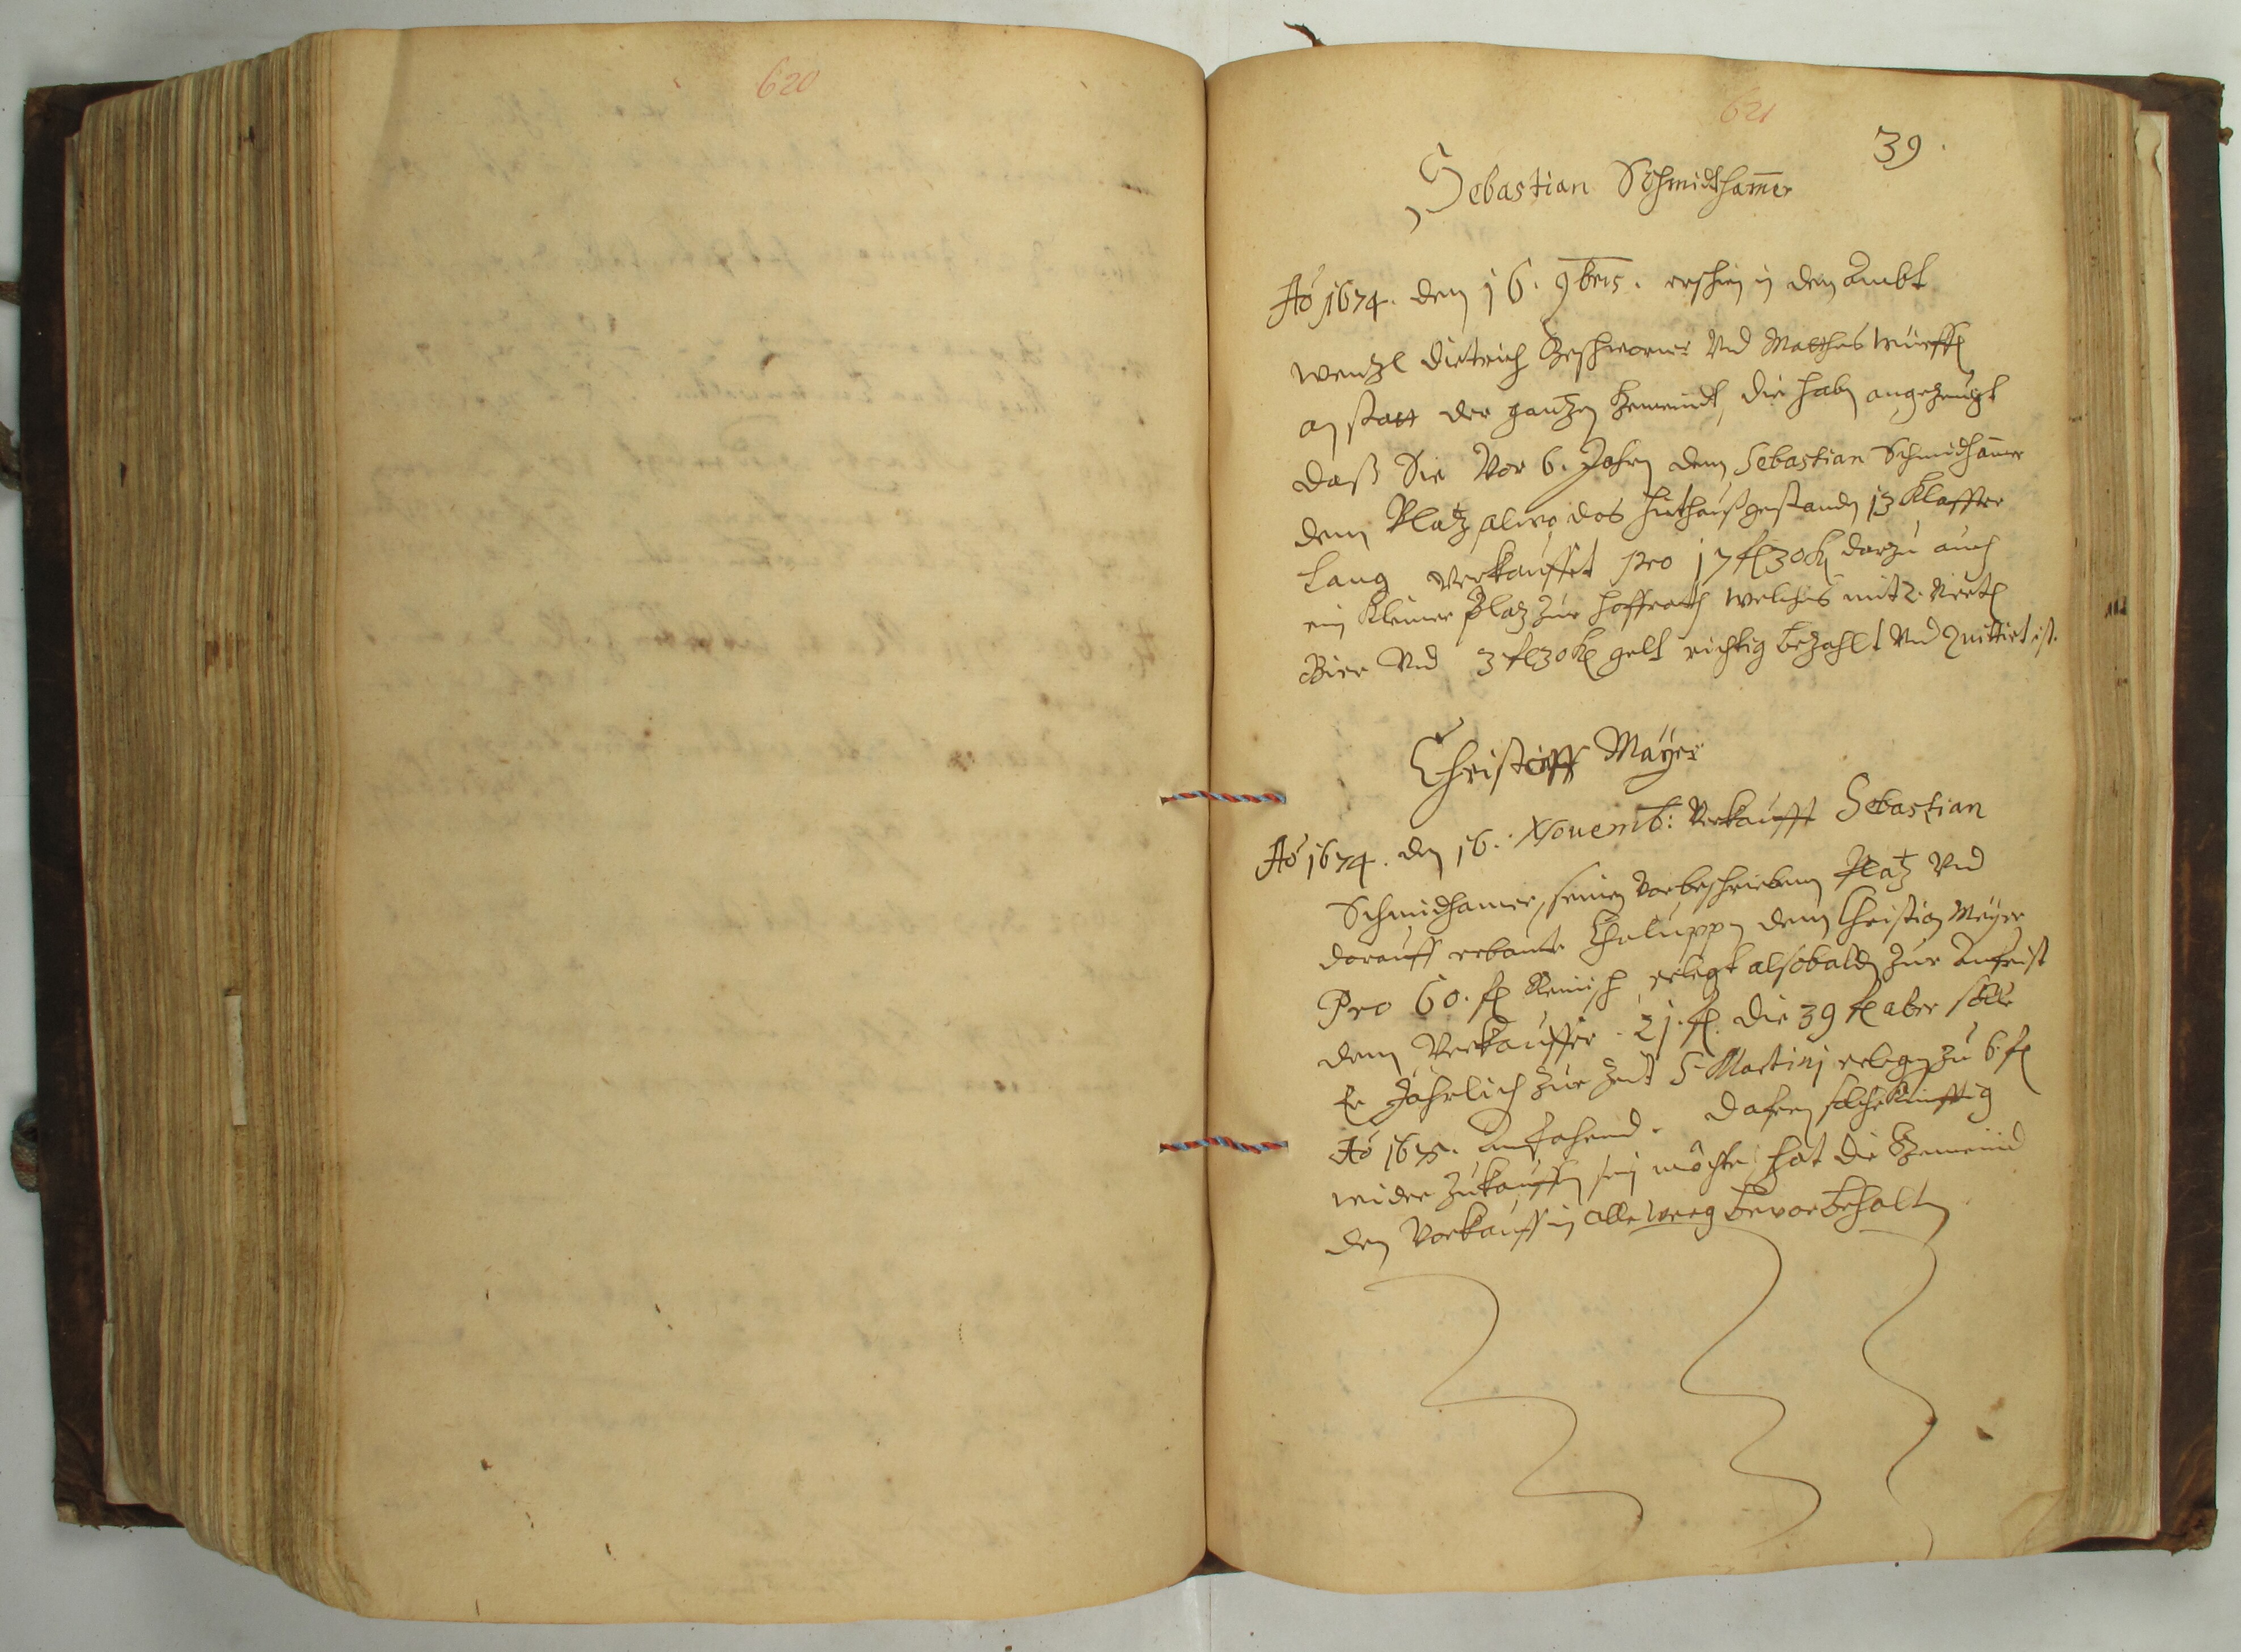 620
621
39.
Sebastian Schmidtham̄er
Aō 1674. den 16. 9bris. erschin in den Ambt
Wentzl Dietrich Geschworner Vnd Matthes
an statt der gantzen Gemeindt, die haben angezeugt
daß Sie Vor 6. Jahren dem Sebastian Schmidham̄er
dem Platz alwo das Huthauß gestanden 13 Klaffter
lang verkauffet pro 17 fl 30 k darzu auch
ein kleiner Platz zur Hoffreith welches mit 2. Viertl
Bier Vnd 3 fl 30 k gelt richtig bezahlt Vnd quittiert ist.
Christoff Mayer
Aō 1674. den 16. Nouemb: Verkaufft Sebastian
Schmidhamer, seinen Vorbeschriebenen Platz Vnd
darauff erbaute Chaluppen dem Christian Mayer
Pro 60. fl Reinisch erlegt alsobalden zur Anfrist
dem Verkauffer. 21. fl. die 39 fl aber solle
Er Jährlich zur Zeit S. Martinj erlegen zu 6. fl
Aō 1675. Anfahend. Dafern solche künfftig
wider zukauffen sein möchte, hat die Gemeind
den Vorkauff in alle weeg bevor behalten